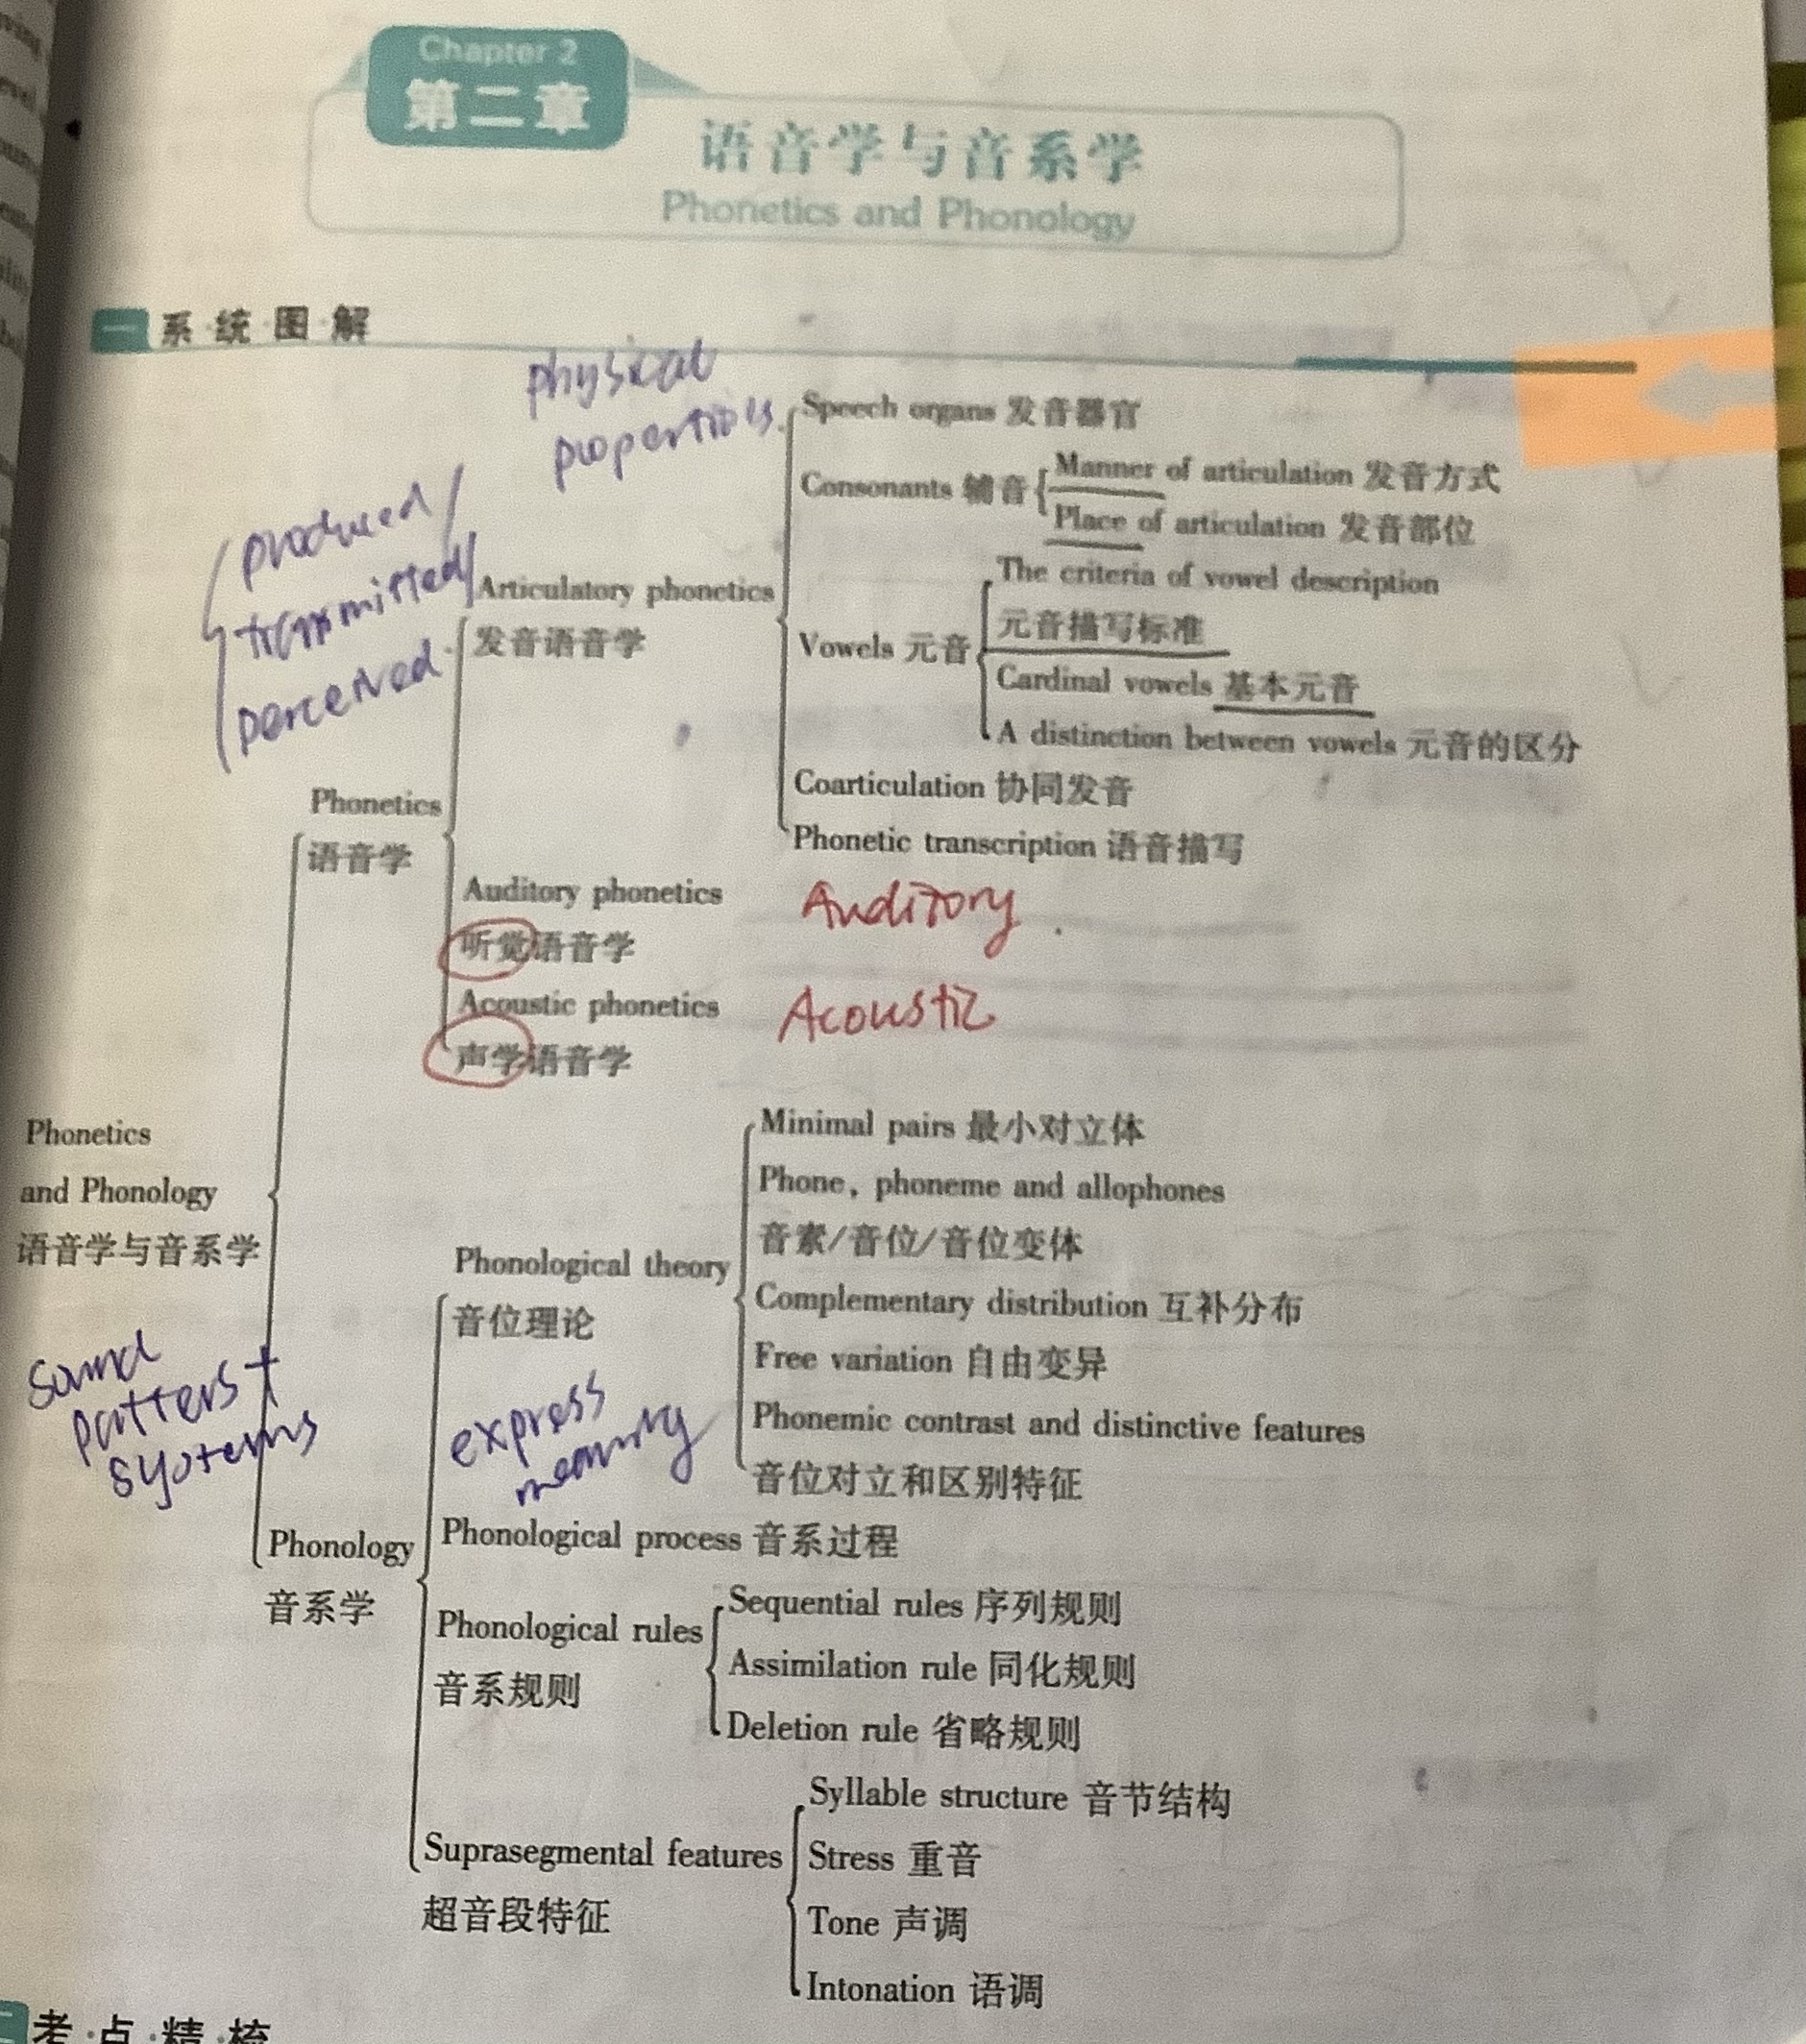 Chapter 2
第二章
语音学与音系学
Phonetics and Phonology
一 系·统·图·解
physical
produced/
transmitted/
perceived
Speech organs 发音器官
Consonants 辅音
Manner of articulation 发音方式
Place of articulation 发音部位
Articulatory phonetics
发音语音学
Vowels 元音
The criteria of vowel description
元音描写标准
Cardinal vowels 基本元音
A distinction between vowels 元音的区分
Coarticulation 协同发音
Phonetic transcription 语音描写
Phonetics
语音学
Auditory phonetics
听觉语音学
Auditory
Acoustic phonetics
声学语音学
Acoustic
Phonetics
and Phonology
语音学与音系学
Minimal pairs 最小对立体
Phone, phoneme and allophones
音素/音位/音位变体
Phonological theory
音位理论
Complementary distribution 互补分布
Free variation 自由变异
Phonemic contrast and distinctive features
音位对立和区别特征
sound
patters +
systems
express
meaning
Phonology
音系学
Phonological process 音系过程
Phonological rules
音系规则
Sequential rules 序列规则
Assimilation rule 同化规则
Deletion rule 省略规则
Suprasegmental features
超音段特征
Syllable structure 音节结构
Stress 重音
Tone 声调
Intonation 语调
考·点·精·梳